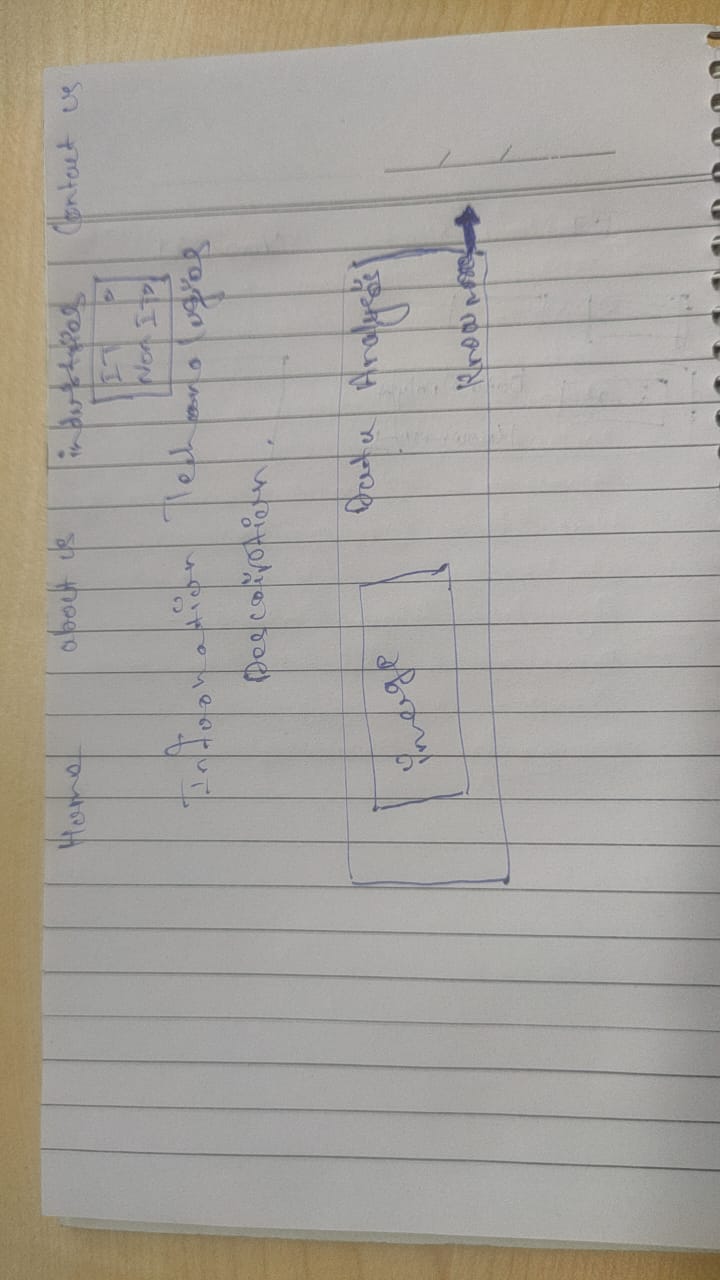 Home about us industries Contact us
IT
Non IT
Information Technologies
Description.
image
Data Analysis
Know more